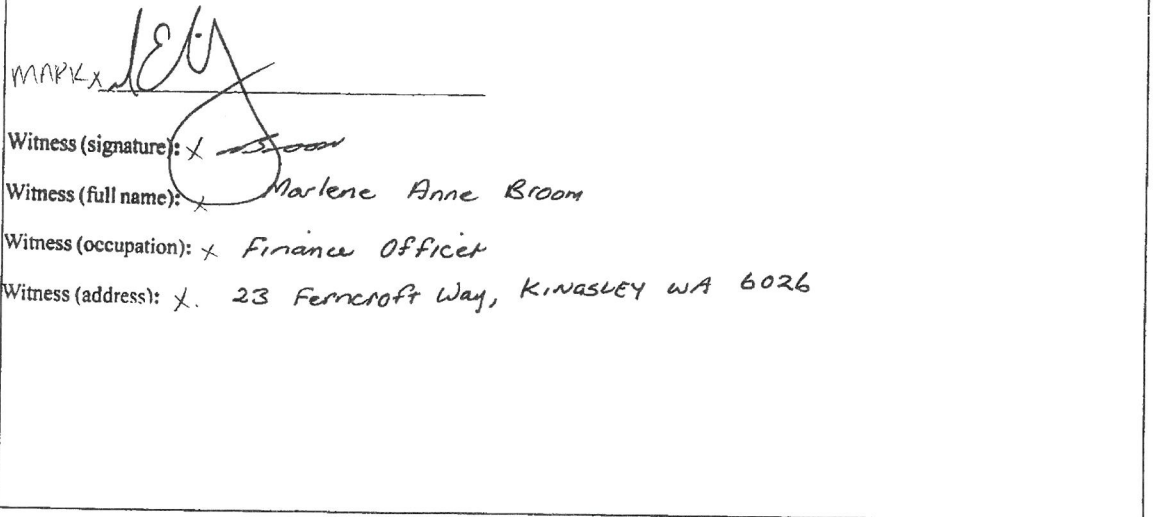 MARK x
Witness (signature): x Broom
Witness (full name): x Marlene Anne Broom
Witness (occupation): x Finance Officer
Witness (address): x. 23 Ferncroft Way, KINGSLEY WA 6026